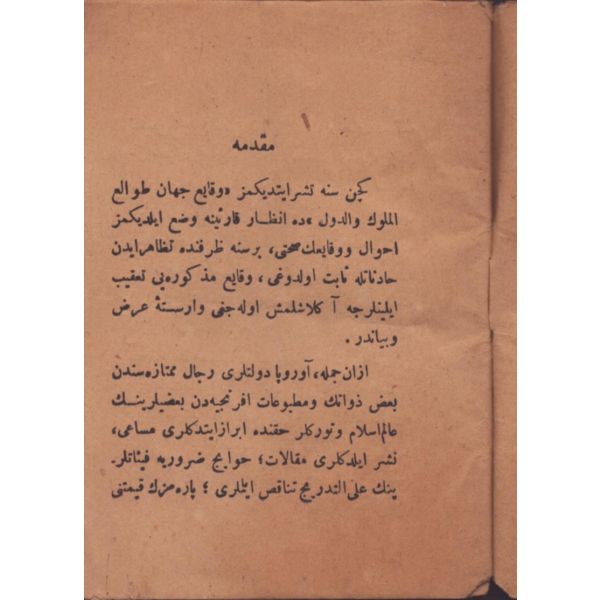 مقدمه
كچن سنه نشر ايتديكمز «وقايع جهان طوالع
الملوك والدول» ده انظار قارئينه وضع ايلديكمز
احوال ووقايعك صحتى، برسنه ظرفنده تظاهر ايدن
حادثاتله ثابت اولدوغى، وقايع مذكوره يى تعقيب
ايلينلرجه آ كلاشلمش اوله جغى وارستهٔ عرض
وبياندر.
ازان جمله، آوروپا دولتلرى رجال ممتازه سندن
بعض ذواتك ومطبوعات افرنجيه دن بعضيلرينك
عالم اسلام وتوركلر حقنده ابراز ايتدكلرى مساعى،
نشر ايلدكلرى مقالات؛ حوايج ضروريه فيئاتلر.
ينك على التدريج تناقص ايتلرى؛ پاره مزك قيمتنى